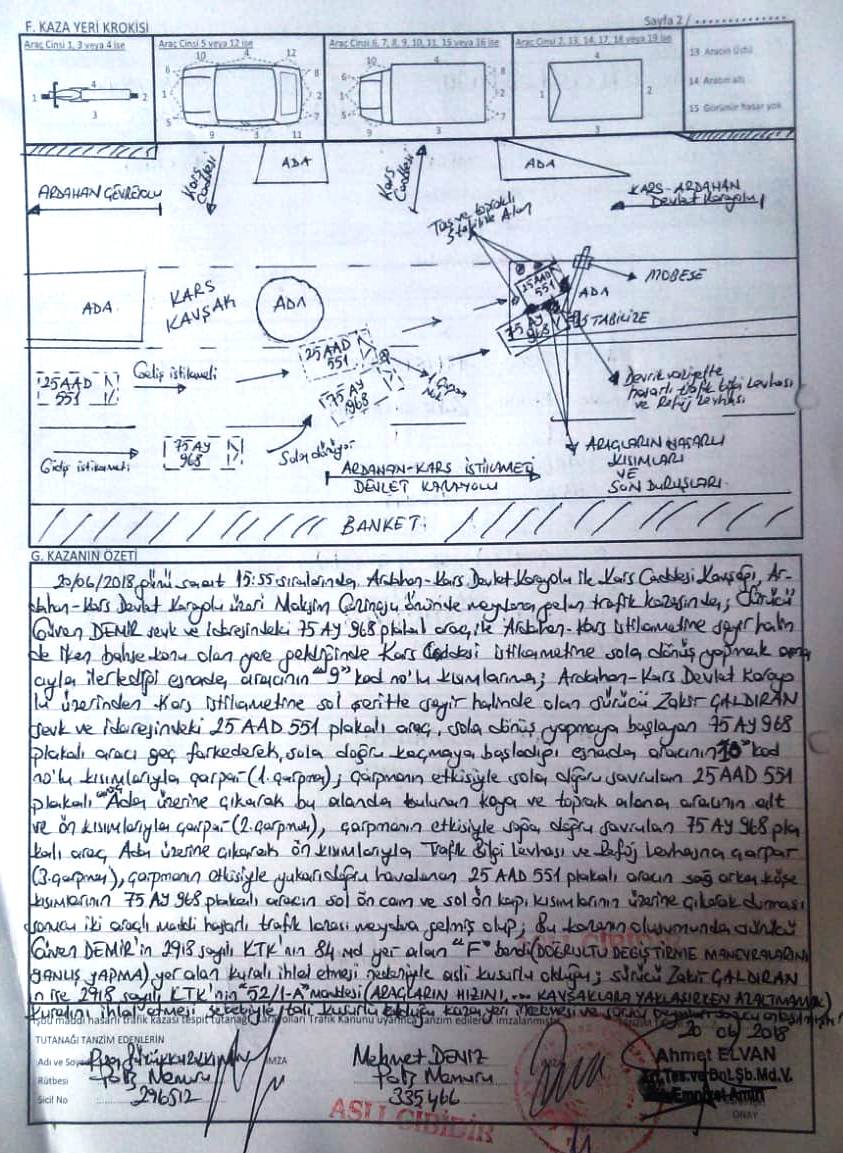 F. KAZA YERİ KROKİSİ
Sayfa 2 /
Araç Cinsi 1, 3 veya 4 ise
Araç Cinsi 5 veya 12 ise
Araç Cinsi 6, 7, 8, 9, 10, 11, 15 veya 16 ise
Araç Cinsi 2, 13, 14, 17, 18 veya 19 ise
13 Aracın Üstü
14 Aracın altı
15 Görünür hasar yok
1 4 2 3
10 4 12 6 8 1 2 5 7 9 3 11
10 4 6 8 1 2 5 7 9 3
4 1 2 3
ARDAHAN ÇEVREYOLU
Kars Caddesi
ADA
Kars Caddesi
ADA
KARS-ARDAHAN
Devlet Karayolu
Taş ve topraklı
Alan
ADA
KARS
KAVŞAK
ADA
25 AAD
551
MOBESE
ADA
75 AY
968
STABİLİZE
25 AAD
551
Geliş istikameti
25 AAD
551
75 AY
968
Devrik vaziyette
hasarlı trafik bilgi levhası
ve Refüj Levhası
Gidiş istikameti
75 AY
968
Sola dönüyor
ARDAHAN-KARS İSTİKAMETİ
DEVLET KARAYOLU
ARAÇLARIN HASARLI
KISIMLARI
VE
SON DURUŞLARI
BANKET
G. KAZANIN ÖZETİ
20/06/2018 günü saat 15:55 sıralarında, Ardahan-Kars Devlet Karayolu ile Kars Caddesi Kavşağı, Ar-
dahan-Kars Devlet Karayolu üzeri önünde meydana gelen trafik kazasında; Sürücü
Güven DEMİR sevk ve idaresindeki 75 AY 968 plakalı araç ile Ardahan-Kars istikametine seyir halin
de iken bahse konu olan yere geldiğinde Kars Caddesi istikametine sola dönüş yapmak ama
cıyla ilerlediği esnada aracının "9" kod no'lu kısımlarına; Ardahan-Kars Devlet Karayo
lu üzerinden Kars istikametine sol şeritte seyir halinde olan sürücü Zakir ÇALDIRAN
sevk ve idaresindeki 25 AAD 551 plakalı araç, sola dönüş yapmaya başlayan 75 AY 968
plakalı aracı geç farkederek, sola doğru kaçmaya başladığı esnada aracının "10" kod
no'lu kısımlarıyla çarpar (1. çarpma); çarpmanın etkisiyle sola doğru savrulan 25 AAD 551
plakalı araç Ada üzerine çıkarak bu alanda bulunan kaya ve toprak alana aracının alt
ve ön kısımlarıyla çarpar (2. çarpma), çarpmanın etkisiyle sağa doğru savrulan 75 AY 968 pla
kalı araç Ada üzerine çıkarak ön kısımlarıyla Trafik Bilgi Levhası ve Refüj Levhasına çarpar
(3. çarpma), çarpmanın etkisiyle yukarı doğru havalanan 25 AAD 551 plakalı aracın sağ arka köşe
kısımlarının 75 AY 968 plakalı aracın sol ön cam ve sol ön kapı kısımlarının üzerine çıkarak durması
sonucu iki araçlı maddi hasarlı trafik kazası meydana gelmiş olup; Bu kazanın oluşumunda sürücü
Güven DEMİR'in 2918 sayılı KTK'nın 84. md yer alan "F" bendi (DOĞRULTU DEĞİŞTİRME MANEVRALARINI
YANLIŞ YAPMA) yer alan kuralı ihlal etmesi nedeniyle asli kusurlu olduğu; sürücü Zakir ÇALDIRAN
ın ise 2918 sayılı KTK'nin "52/1-A" maddesi (ARAÇLARIN HIZINI, ... KAVŞAKLARA YAKLAŞIRKEN AZALTMAMAK)
kuralını ihlal etmesi sebebiyle tali kusurlu olduğu kaza yeri incelemesi ve
İşbu maddi hasarlı trafik kazası tespit tutanağı Trafik Kanunu uyarınca tanzim edilerek imzalanmıştır.
20 06/2018
TUTANAĞI TANZİM EDENLERİN
Adı ve Soyadı
İMZA
Mehmet DENİZ
Ahmet ELVAN
Rütbesi
Polis Memuru
Polis Memuru
Md.V.
Emniyet Amiri
Sicil No
296512
335466
ONAY
ASLI GİBİDİR